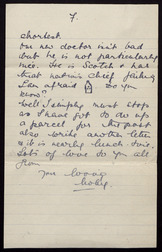 7.
shortest.
Our new doctor isn't bad
but he is not particularly
nice. He is Scotch & has
that nation's chief failing
I am afraid Do you
know?
Well I simply must stop
as I have got to do up
a parcel for this post
also write another letter
& it is nearly lunch time.
Lots of love to you all
from
Your loving